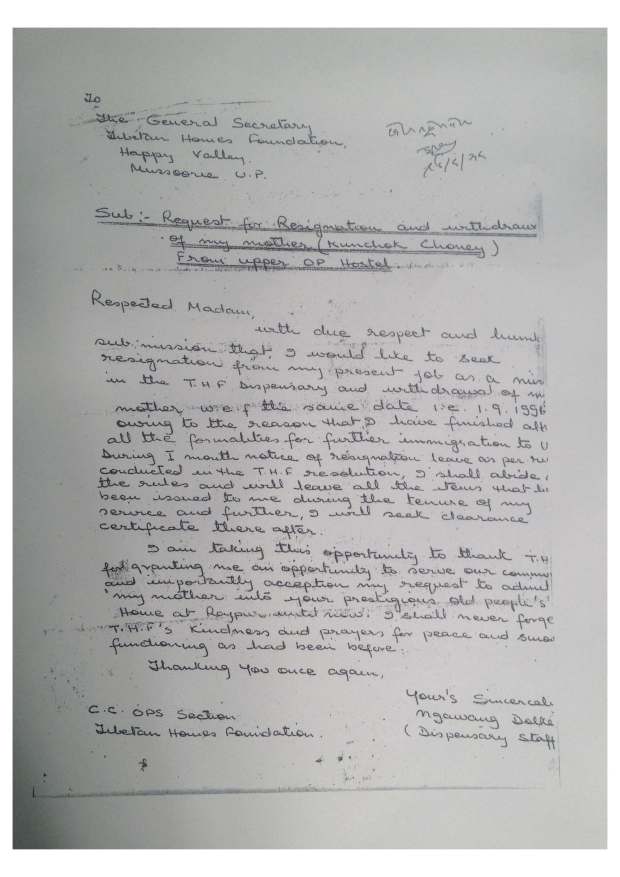 To
The General Secretary
Tibetan Homes Foundation,
Happy Valley.
Mussoorie U.P.
Sub:- Request for Resignation and withdraw
of my mother (Kunchok Choney)
From upper OP Hostel.
Respected Madam,
with due respect and humb
sub mission that, I would like to seek
resignation from my present job as a
in the T.H.F Dispensary and withdrawal of
mother w.e.f the same date i.e. 1.9.199
owing to the reason that I have finished
all the formalities for further immigration to U
During 1 month notice of resignation leave as per
conducted in the T.H.F resolution, I shall abide
the rules and will leave all the items that
been issued to me during the tenure of my
service and further, I will seek clearance
certificate there after.
I am taking this opportunity to thank T.H
for granting me an opportunity to serve our commu
and importantly acception my request to admit
my mother into your prestigious old people's
Home at Rajpur until now. I shall never forge
T.H.F's kindness and prayers for peace and smoo
functioning as had been before.
Thanking you once again,
Your's Sincerel
C.C. OPS Section
Ngawang Dolke
Tibetan Homes Foundation.
(Dispensary Staff